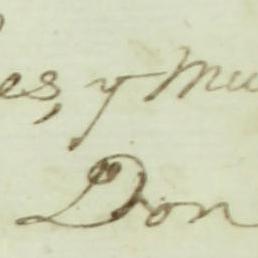 es, y Mu
Don